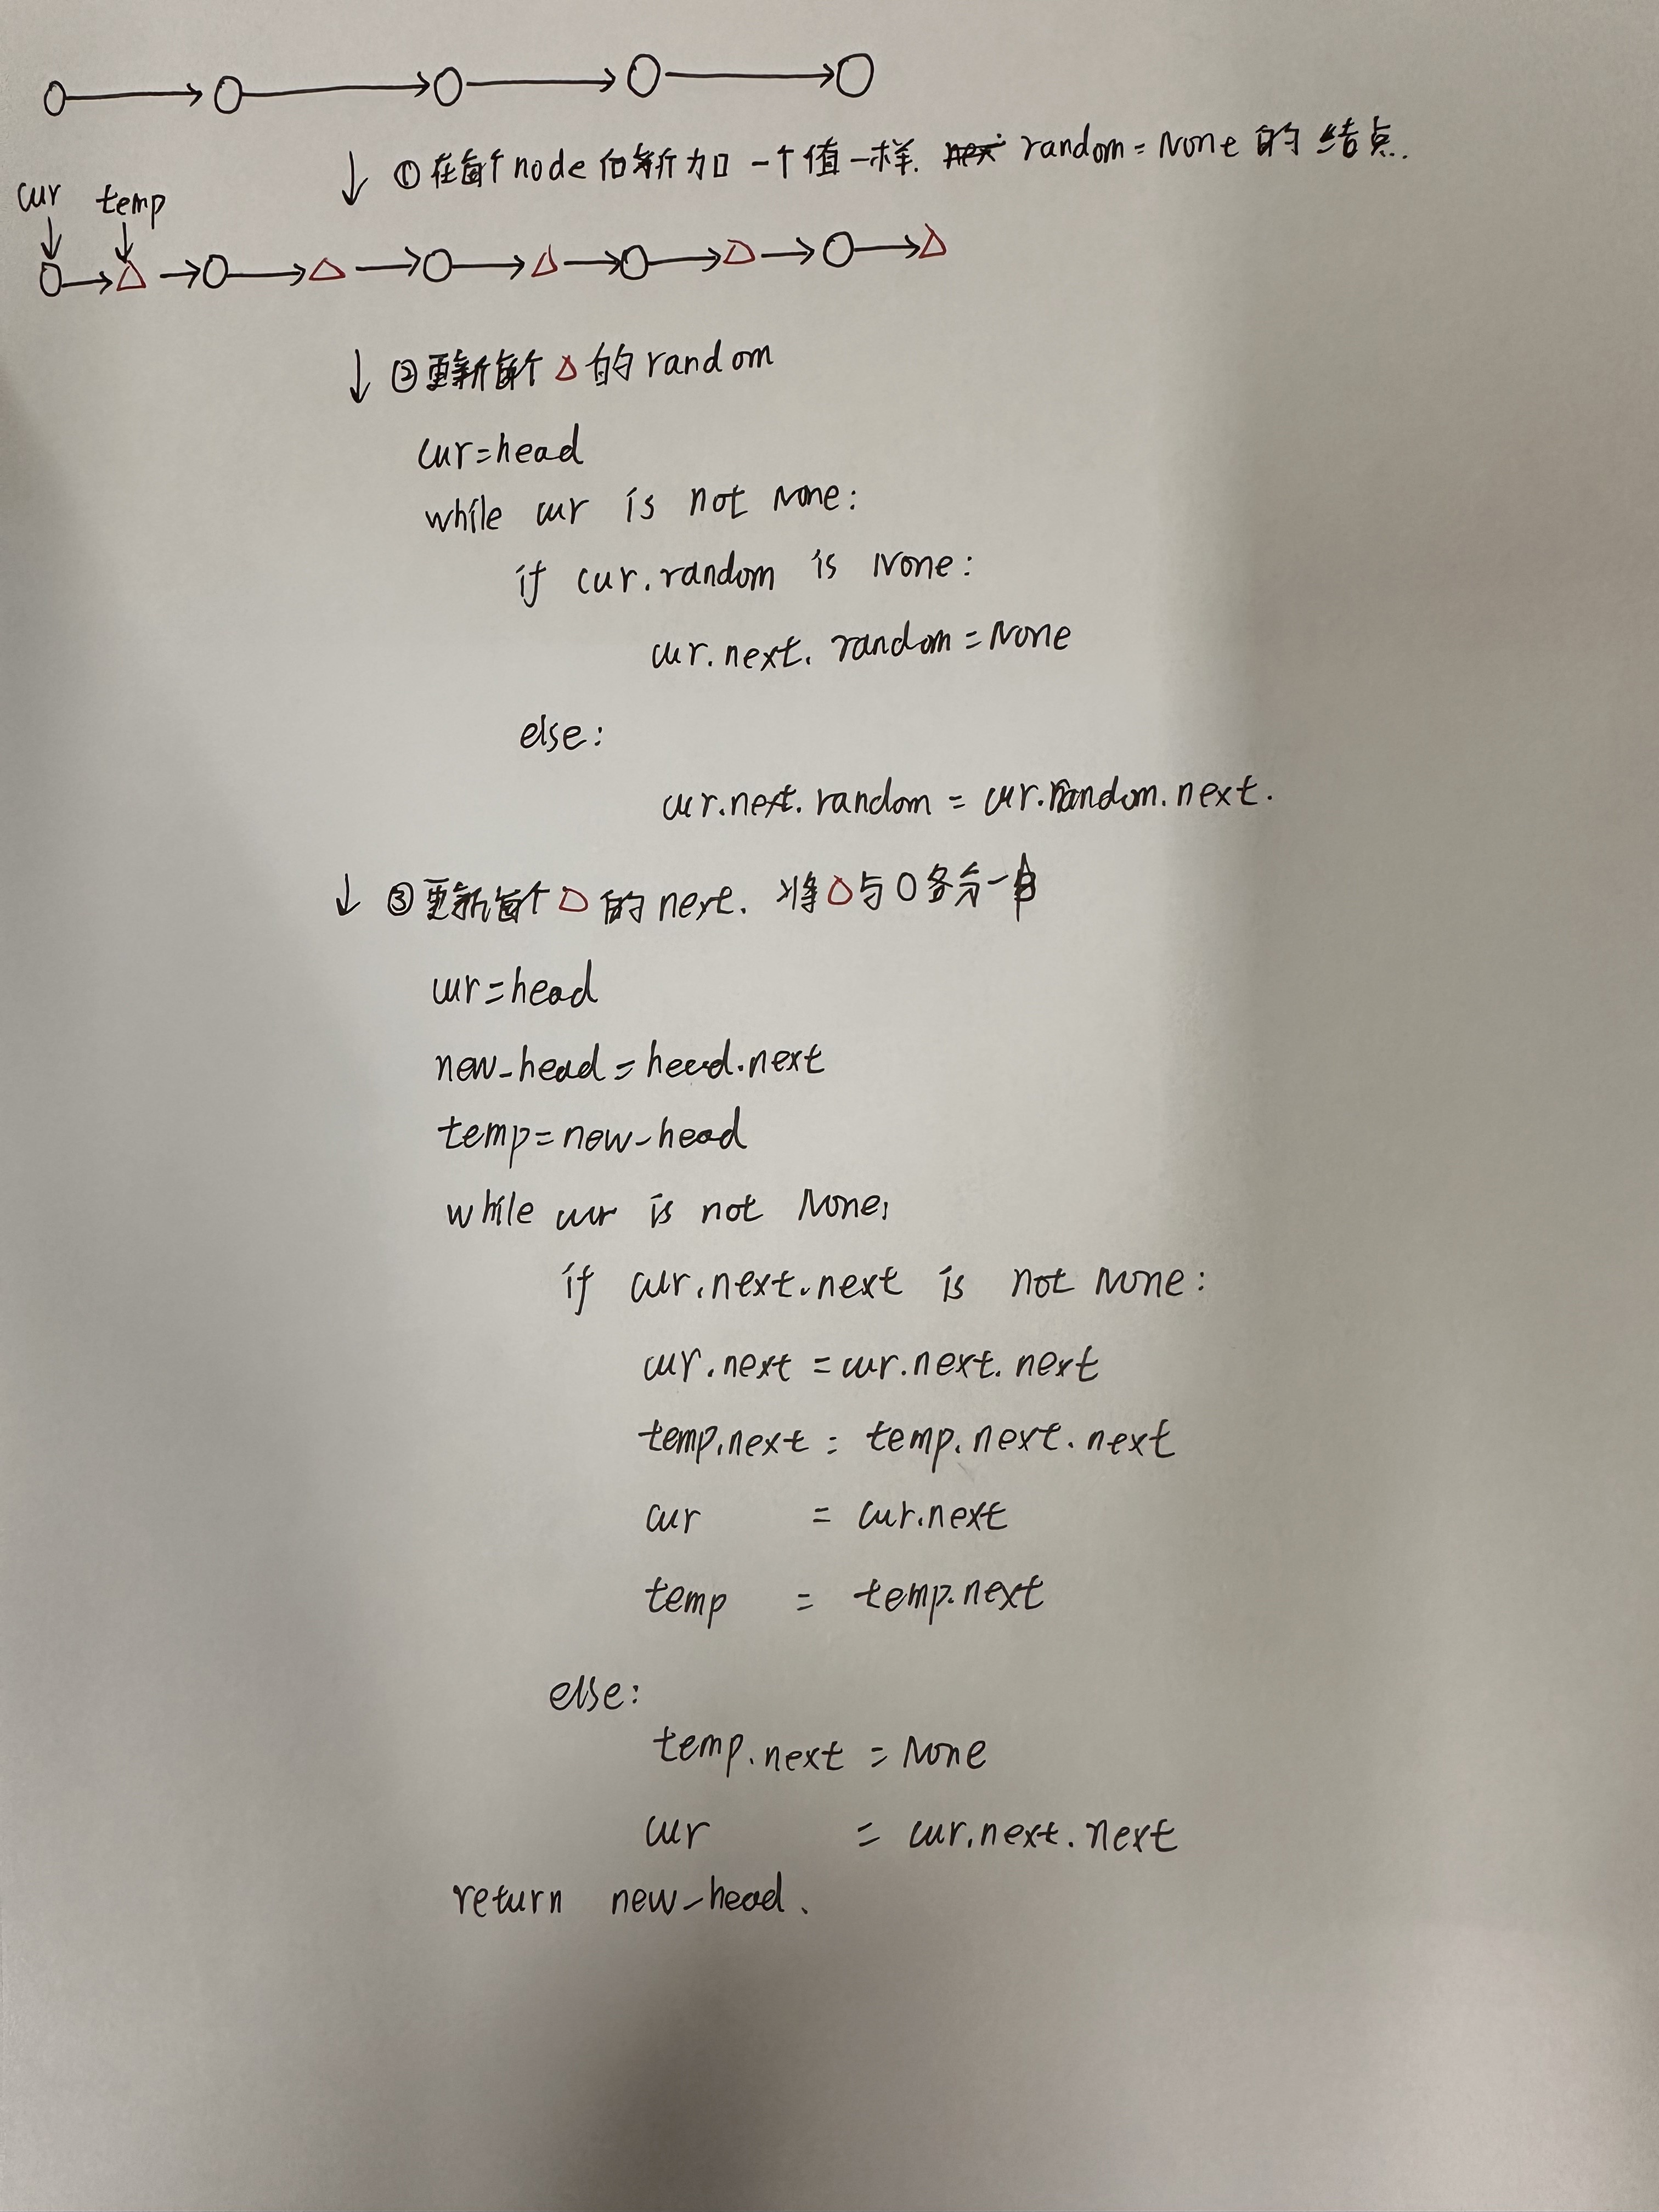 ①在每个node后新加一个值一样. random=None的结点.
cur temp
②更新每个△的random
cur=head
while cur is not None:
if cur.random is None:
cur.next.random=None
else:
cur.next.random=cur.random.next.
③更新每个△的next. 将△与○各分一
cur=head
new_head=head.next
temp=new_head
while cur is not None:
if cur.next.next is not None:
cur.next=cur.next.next
temp.next=temp.next.next
cur = cur.next
temp = temp.next
else:
temp.next=None
cur = cur.next.next
return new_head.